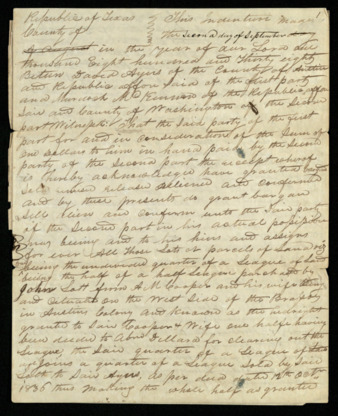 Republic of Texas } This Indenture made
County of } the Second day of September
in the year of our Lord one
thousand Eight hundred and thirty eight
Between David Ayers of the County of
and Republic aforesaid of the first part
and M. Kinnard of the Republic afore
said and County of Washington of the Second
part Witnesseth that the said party of the first
part for and in consideration of the Sum of
one dollar to him in hand paid by the Second
party of the Second part the receipt whereof
is hereby acknowledged have granted
sold released aliened and confirmed
and by these presents do grant bargain
sell alien and confirm unto the said party
of the Second part in his actual possession
now being and to his heirs and assigns
for ever All those Lots or parcels of Land
being the undivided quarter of a League of Land
being the half of a half League purchased by
John Lott from A.M Cooper and his wife
and situated on the West Side of the Brazos
in Austins Colony and Known as the
granted to Said Cooper & Wife one half having
been deeded to Abm Dillard for clearing out the
League, the Said quarter of a League
a quarter of a League Sold by said
Lott to Said Ayers, as per deed 12th Oct
1836 thus making the whole half as granted